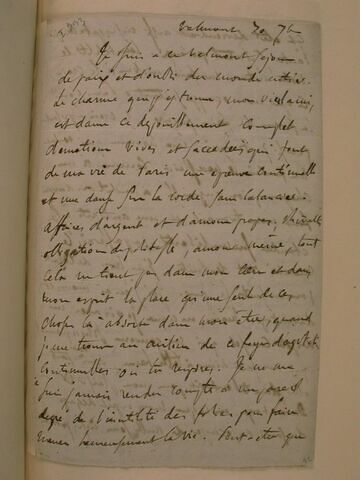 Valmont 30 7b
Je suis à ce Valmont séjour
de paix et d'oubli du monde entier.
Le charme que j'éprouve, mon vieil ami,
est dans ce dépouillement complet
d'émotions vives et saccadées qui font
de ma vie de Paris une épreuve continuelle
et une danse sur la corde sans balancier.
affaires d'argent et d'amour propre,
obligations, amour même, tout
cela ne tient pas dans mon cœur et dans
mon esprit la place qu'une seule de ces
choses là absorbe dans mon être, quand
je me trouve au milieu de ce foyer d'agitations
continuelles où tu respires. Je ne me
suis jamais rendu compte à un pareil
degré de l'inutilité des pour faire
mener heureusement la vie. Peut-être que